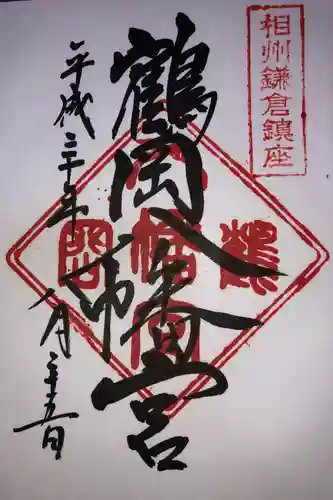 相州鎌倉鎮座
鶴岡八幡宮
平成三十年八月二十五日
鶴岡八幡宮